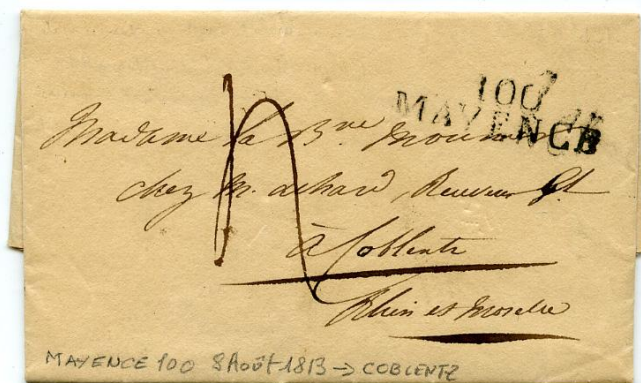 100
MAYENCE
Madame la Bne
chez M. Receveur Gl
à Coblentz
Rhin et Moselle
MAYENCE 100 8 Août 1813 → COBLENTZ